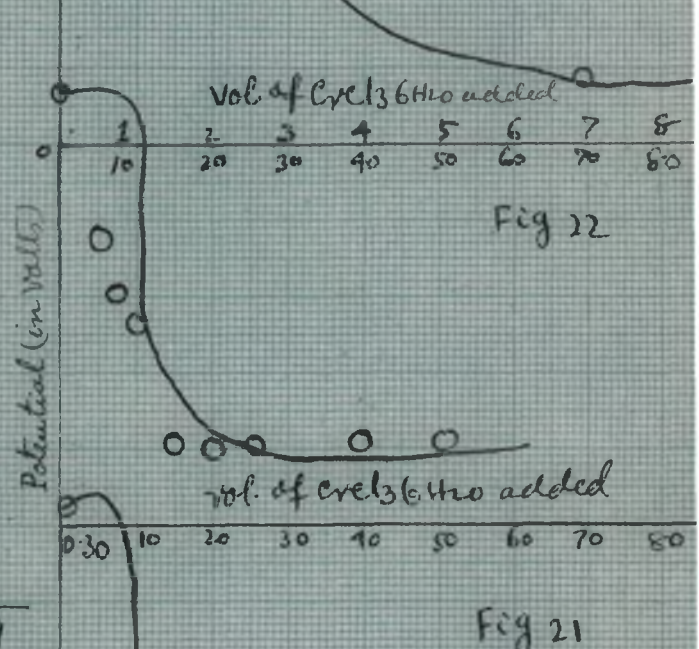 Vol. of CrCl3 6H2O added
1 2 3 4 5 6 7 8
0 10 20 30 40 50 60 70 80
Fig 22
Potential (in volts)
vol. of CrCl3 6H2O added
0.30 10 20 30 40 50 60 70 80
Fig 21